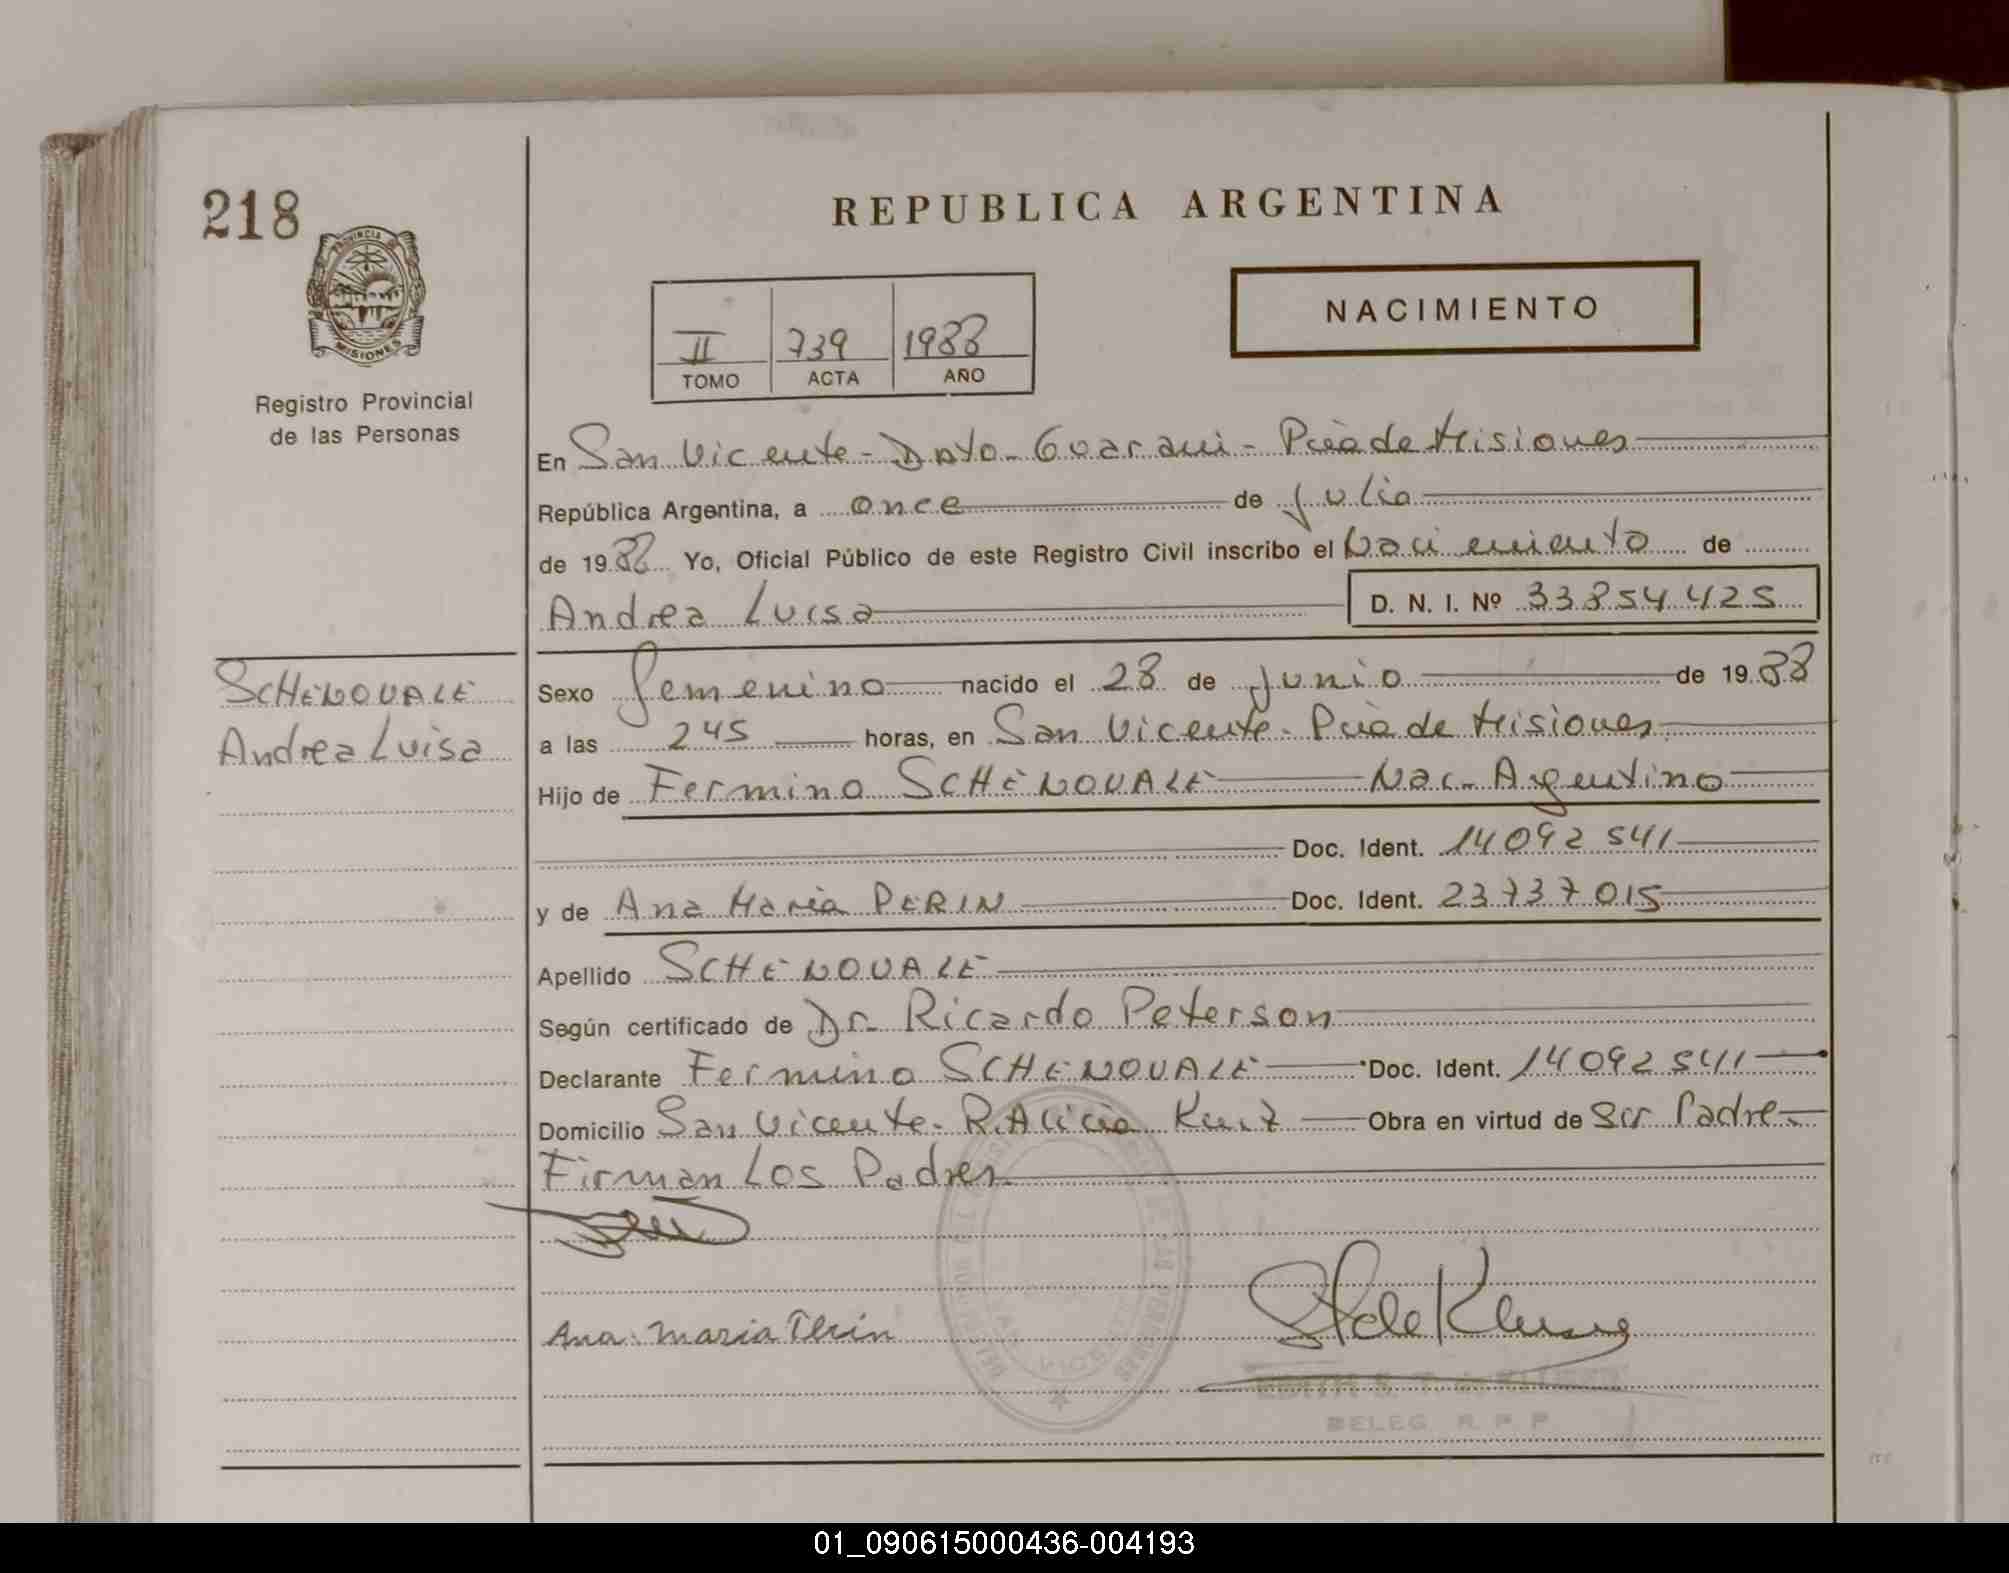 218
PROVINCIA DE
MISIONES
Registro Provincial
de las Personas
REPUBLICA ARGENTINA
NACIMIENTO
II 739 1988
TOMO ACTA AÑO
En San Vicente - Dpto - Guarani - Pcia de Misiones
República Argentina, a once de Julio
de 1988 Yo, Oficial Público de este Registro Civil inscribo el Nacimiento de
Andrea Luisa D. N. I. Nº 33854425
SCHENOVALE
Andrea Luisa
Sexo femenino nacido el 28 de Junio de 1988
a las 2 45 horas, en San Vicente - Pcia de Misiones
Hijo de Fermino SCHENOVALE Nac - Argentino
Doc. Ident. 14092541
y de Ana Maria PERIN Doc. Ident. 23737015
Apellido SCHENOVALE
Según certificado de Dr Ricardo Peterson
Declarante Fermino SCHENOVALE Doc. Ident. 14092541
Domicilio San Vicente - R. Alicia Obra en virtud de ser Padre
Firman Los Padres
Ana Maria Perin
DELEG. R. P. P.
01_090615000436-004193